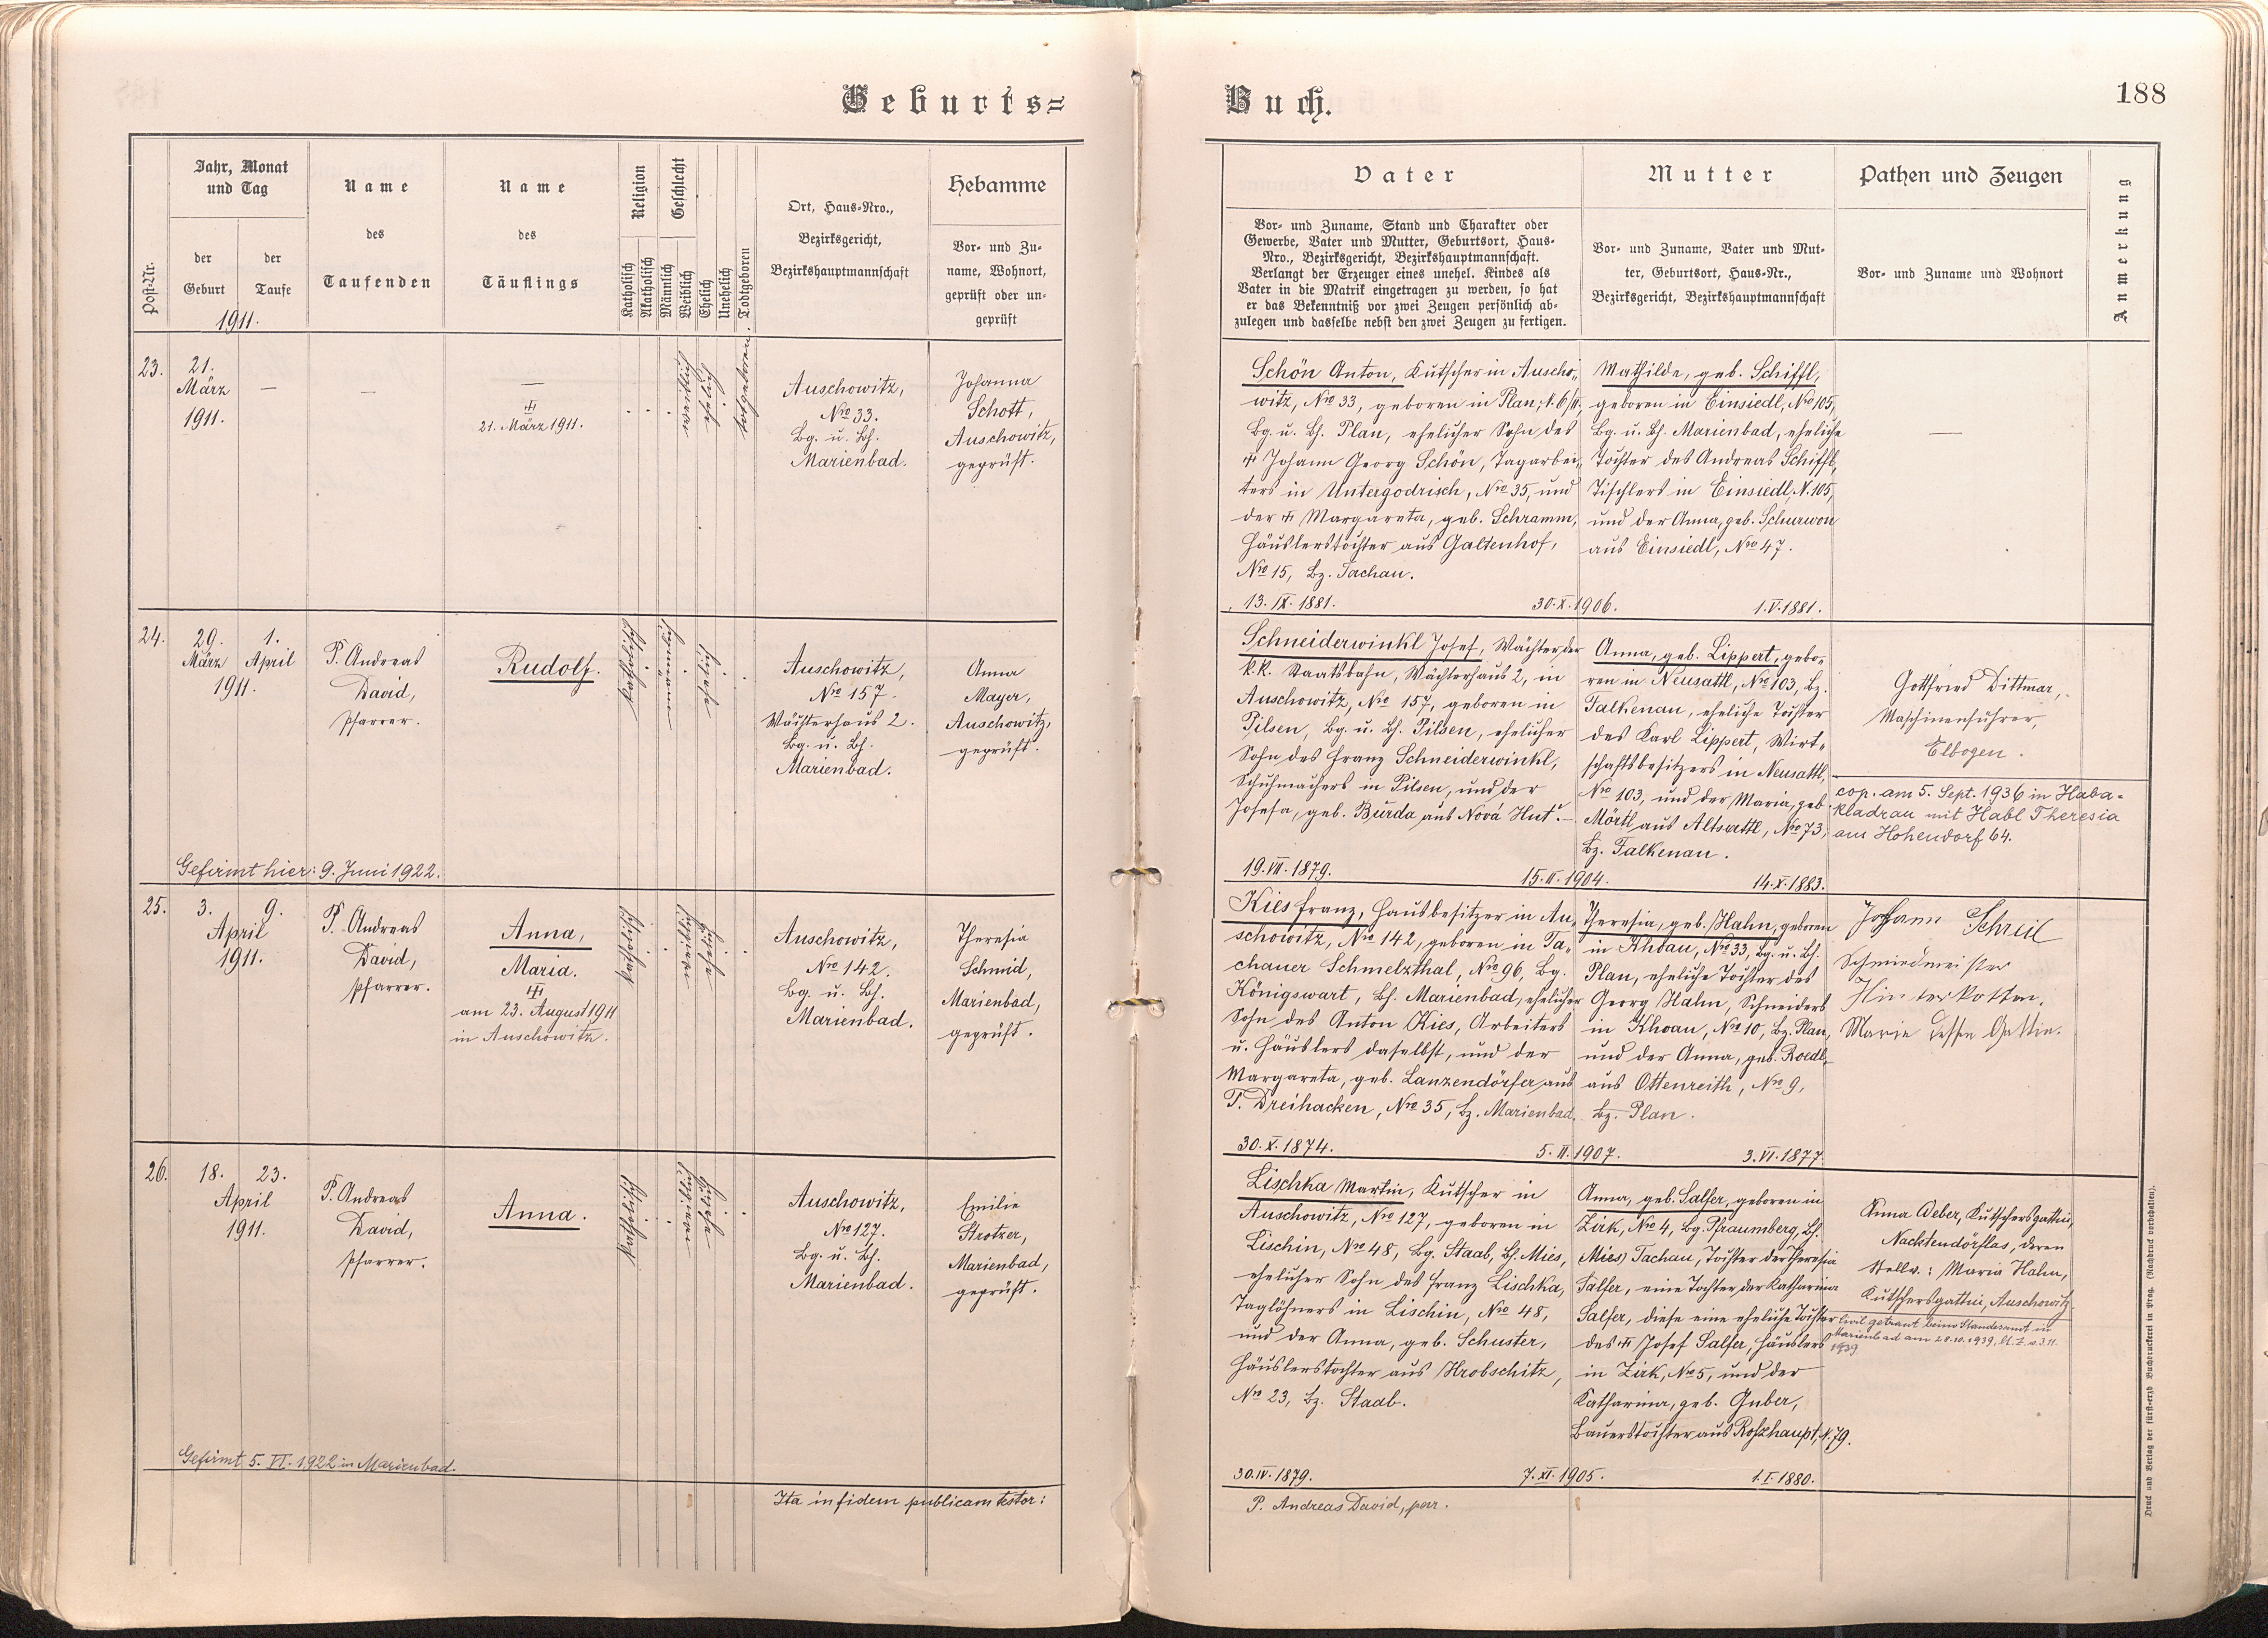 Geburts=
Buch.
188
Post-Nr.
Jahr, Monat
und Tag
der
Geburt
der
Taufe
1911.
Name
des
Taufenden
Name
des
Täuflings
Religion
Katholisch
Akatholisch
Geschlecht
Männlich
Weiblich
Ehelich
Unehelich
Todtgeboren
Ort, Haus-Nro.,
Bezirksgericht,
Bezirkshauptmannschaft
Hebamme
Vor- und Zu-
name, Wohnort,
geprüft oder un-
geprüft
Vater
Vor- und Zuname, Stand und Charakter oder
Gewerbe, Vater und Mutter, Geburtsort, Haus-
Nro., Bezirksgericht, Bezirkshauptmannschaft.
Verlangt der Erzeuger eines unehel. Kindes als
Vater in die Matrik eingetragen zu werden, so hat
er das Bekenntniß vor zwei Zeugen persönlich ab-
zulegen und dasselbe nebst den zwei Zeugen zu fertigen.
Mutter
Vor- und Zuname, Vater und Mut-
ter, Geburtsort, Haus-Nr.,
Bezirksgericht, Bezirkshauptmannschaft
Pathen und Zeugen
Vor- und Zuname und Wohnort
Anmerkung
23.
21.
März
1911.
—
—
—
21. März 1911.
weiblich
ehelich
totgeboren.
Auschowitz,
Nro 33.
Bg. u. Bh.
Marienbad.
Johanna
Schott,
Auschowitz,
geprüft.
Schön Anton, Kutscher in Auscho-
witz, Nro 33, geboren in Plan, N. 6/II.,
Bg. u. Bh. Plan, ehelicher Sohn des
† Johann Georg Schön, Tagarbei-
ters in Untergodrisch, Nro 35, und
der † Margareta, geb. Schramm,
Häuslerstochter aus Galtenhof,
Nro 15, Bz. Tachau.
13. IX. 1881.
30. X. 1906.
Mathilde, geb. Schiffl,
geboren in Einsiedl, Nro 105,
Bg. u. Bh. Marienbad, eheliche
Tochter des Andreas Schiffl,
Tischlers in Einsiedl, N. 105,
und der Anna, geb. Schurwon
aus Einsiedl, Nro 47.
1. V. 1881.
—
24.
29.
März
1.
April
1911.
P. Andreas
David,
Pfarrer.
Rudolf.
katholisch
männlich
ehelich
Auschowitz,
Nro 157.
Wächterhaus 2.
Bg. u. Bh.
Marienbad.
Anna
Mayer,
Auschowitz,
geprüft.
Gefirmt hier: 9. Juni 1922.
Schneiderwinkl Josef, Wächter der
k.k. Staatsbahn, Wächterhaus 2, in
Auschowitz, Nro 157, geboren in
Pilsen, Bg. u. Bh. Pilsen, ehelicher
Sohn des Franz Schneiderwinkl,
Schuhmachers in Pilsen, und der
Josefa, geb. Burda aus Nová Hut'. —
19. VII. 1879.
15. II. 1904.
Anna, geb. Lippert, gebo-
ren in Neusattl, Nro 103, Bz.
Falkenau, eheliche Tochter
des Karl Lippert, Wirt-
schaftsbesitzers in Neusattl,
Nro 103, und der Maria, geb.
Mörtl aus Altsattl, Nro 73,
Bz. Falkenau.
14. X. 1883.
Gottfried Dittmar,
Maschinenführer,
Elbogen.
cop. am 5. Sept. 1936 in Haba-
kladrau mit Habl Theresia
aus Hohendorf 64.
25.
3.
9.
April
1911.
P. Andreas
David,
Pfarrer.
Anna,
Maria.
am 23. August 1911
in Auschowitz.
katholisch
weiblich
ehelich
Auschowitz,
Nro 142.
Bg. u. Bh.
Marienbad.
Theresia
Schmid,
Marienbad,
geprüft.
Kies Franz, Hausbesitzer in Au-
schowitz, Nro 142, geboren in Ta-
chauer Schmelzthal, Nro 96, Bg.
Königswart, Bh. Marienbad, ehelicher
Sohn des Anton Kies, Arbeiters
u. Häuslers daselbst, und der
Margareta, geb. Lanzendörfer aus
T. Dreihacken, Nro 35, Bz. Marienbad.
30. X. 1874.
5. II. 1907.
Theresia, geb. Hahn, geboren
in Khoau, Nro 33, Bg. u. Bh.
Plan, eheliche Tochter des
Georg Hahn, Schneiders
in Khoau, Nro 10, Bz. Plan,
und der Anna, geb. Roedl,
aus Ottenreith, Nro 9,
Bz. Plan.
3. VI. 1877.
Johann Schreil
Schmiedmeister
Hinterkotten.
Marie dessen Gattin.
26.
18.
23.
April
1911.
P. Andreas
David,
Pfarrer.
Anna.
katholisch
weiblich
ehelich
Auschowitz,
Nro 127.
Bg. u. Bh.
Marienbad.
Emilie
Strotzer,
Marienbad,
geprüft.
Gefirmt 5. VI. 1922 in Marienbad.
Lischka Martin, Kutscher in
Auschowitz, Nro 127, geboren in
Lischin, Nro 48, Bg. Staab, Bh. Mies,
ehelicher Sohn des Franz Lischka,
Taglöhners in Lischin, Nro 48,
und der Anna, geb. Schuster,
Häuslerstochter aus Hrobschitz,
Nro 23, Bz. Staab.
30. IV. 1879.
7. XI. 1905.
Anna, geb. Salfer, geboren in
Zirk, Nro 4, Bg. Pfraumberg, Bh.
Mies) Tachau, Tochter der Theresia
Salfer, eine Tochter der Katharina
Salfer, diese eine eheliche Tochter
des † Josef Salfer, Häuslers
in Zirk, Nro 5, und der
Katharina, geb. Guber,
Bauerstochter aus Roßhaupt, N. 79.
1. I. 1880.
Anna Weber, Kutschersgattin,
Nacktendörflas, deren
Stellv.: Maria Hahn,
Kutschersgattin, Auschowitz.
Civil getraut beim Standesamt in
Marienbad am 28.10.1939,
1939
Ita in fidem publicam testor:
P. Andreas David, par.
Druck und Verlag der fürst-erzb. Buchdruckerei in Prag. (Nachdruck vorbehalten).